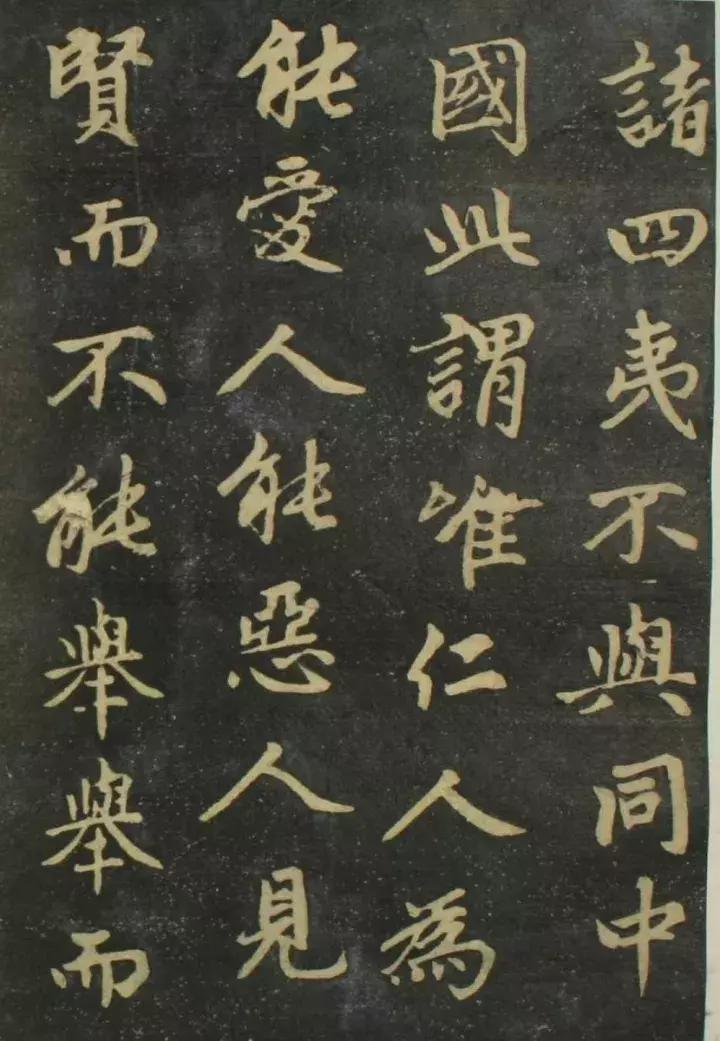 諸四夷不與同中
國此謂唯仁人為
能愛人能惡人見
賢而不能舉舉而